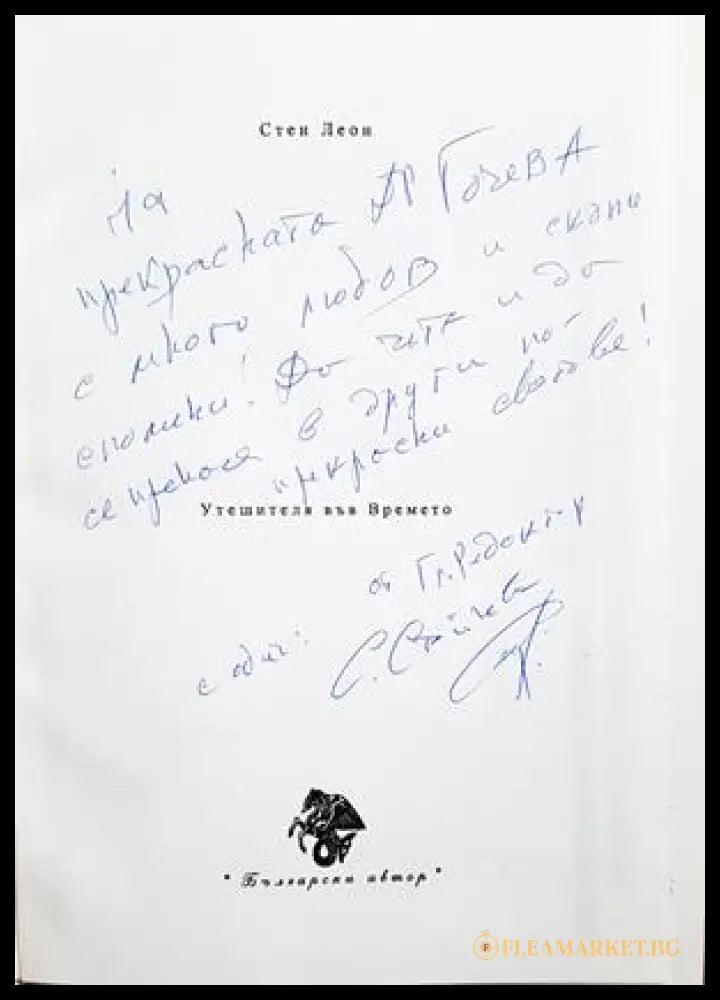 Стен Леон
На
прекрасната Др Гочева
с много любов и скъпи
спомени! Да чита и да
се пренася в други по-
прекрасни светове!
Утешителя във Времето
от Гл. Редакт-р
с обич: С. Стойчев
"Български автор"
FLEAMARKET.BG